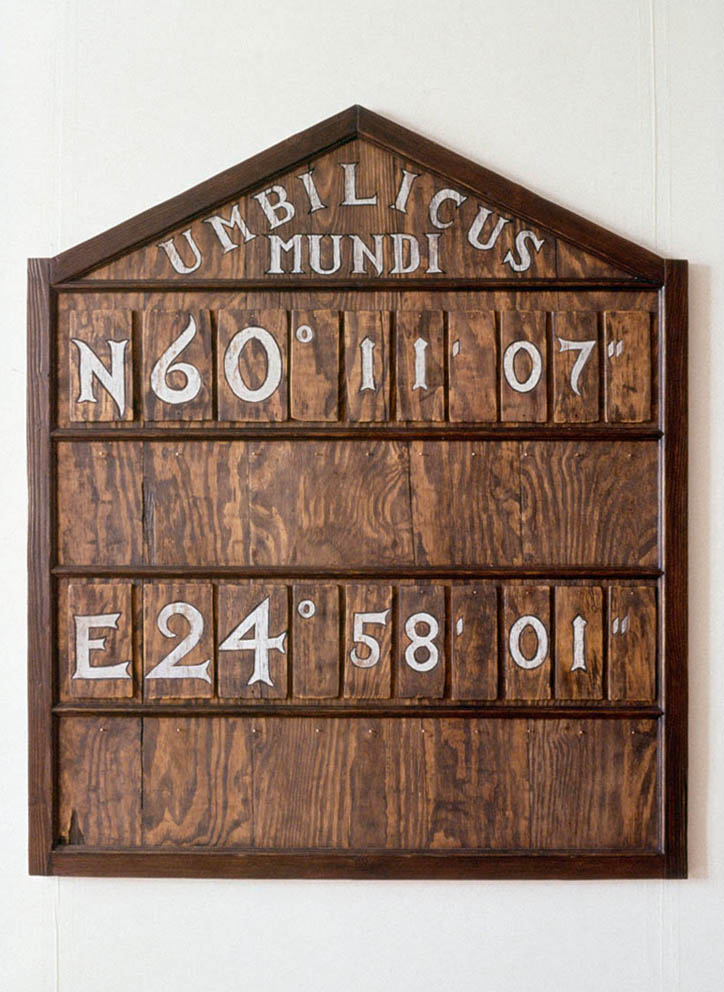 UMBILICUS
MUNDI
N60° 11' 07"
E24° 58' 01"